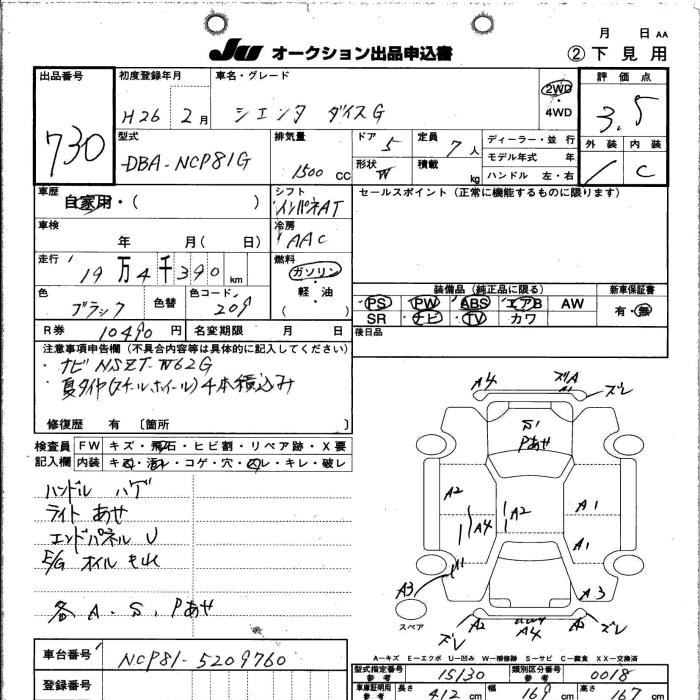 月 日 AA
JU オークション出品申込書 ②下見用
出品番号 初度登録年月 車名・グレード 評価点
730 H26 2月 シエンタ ダイスG 2WD・4WD 3.5
型式 排気量 ドア 定員 ディーラー・並行 外装 内装
DBA-NCP81G 1500cc 5 7人 モデル年式 年 C
形状 W 積載 kg ハンドル 左・右
車歴 自家用・( ) シフト インパネAT セールスポイント(正常に機能するものに限ります)
車検 年 月( 日) 冷房 AAC
走行 19万4千390km 燃料 ガソリン・軽・油 ( )
装備品(純正品に限る) 新車保証書
色 ブラック 色替 色コード 209 PS PW ABS エアB AW 有・無
SR ナビ TV カワ
R券 10490円 名変期限 月 日 後日品
注意事項申告欄(不具合内容等は具体的に記入してください)
・ナビ NSZT-W62G
・夏タイヤ(スチールホイール)4本積込み
修復歴 有 〔箇所 〕
検査員 FW キズ・飛石・ヒビ割・リペア跡・X要
記入欄 内装 キズ・汚レ・コゲ・穴・スレ・キレ・破レ
ハンドル ハゲ
ライト あせ
エンドパネル U
E/G オイルもれ
各 A、S、Pあせ
A4 ズレA ズレ
A1
S1
Pあせ
A2 A2 A1
A4 A1
A3 A3
スペア
ズレ A2 A4 A2 ズレ
A-キズ E-エクボ U-凹み W-補修跡 S-サビ C-腐食 XX-交換済
車台番号 NCP81-5209760
型式指定番号 参考 15130 類別区分番号 参考 0018
登録番号 車庫証明用 参考 長さ 412cm 幅 169cm 高さ 167cm